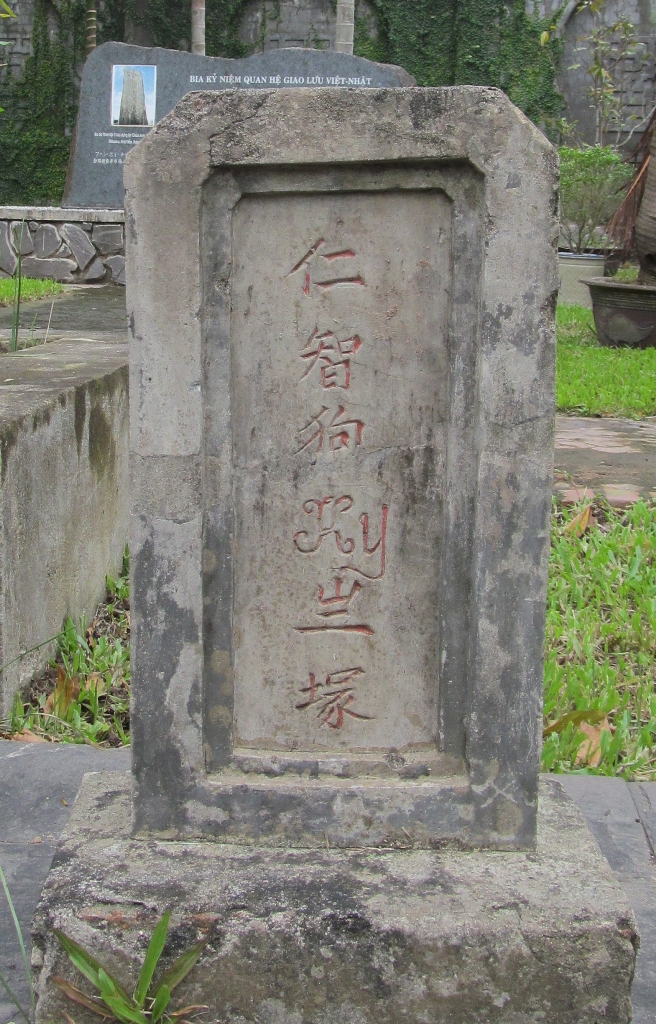 BIA KỶ NIỆM QUAN HỆ GIAO LƯU VIỆT-NHẬT
仁智狗Ky㞢塚